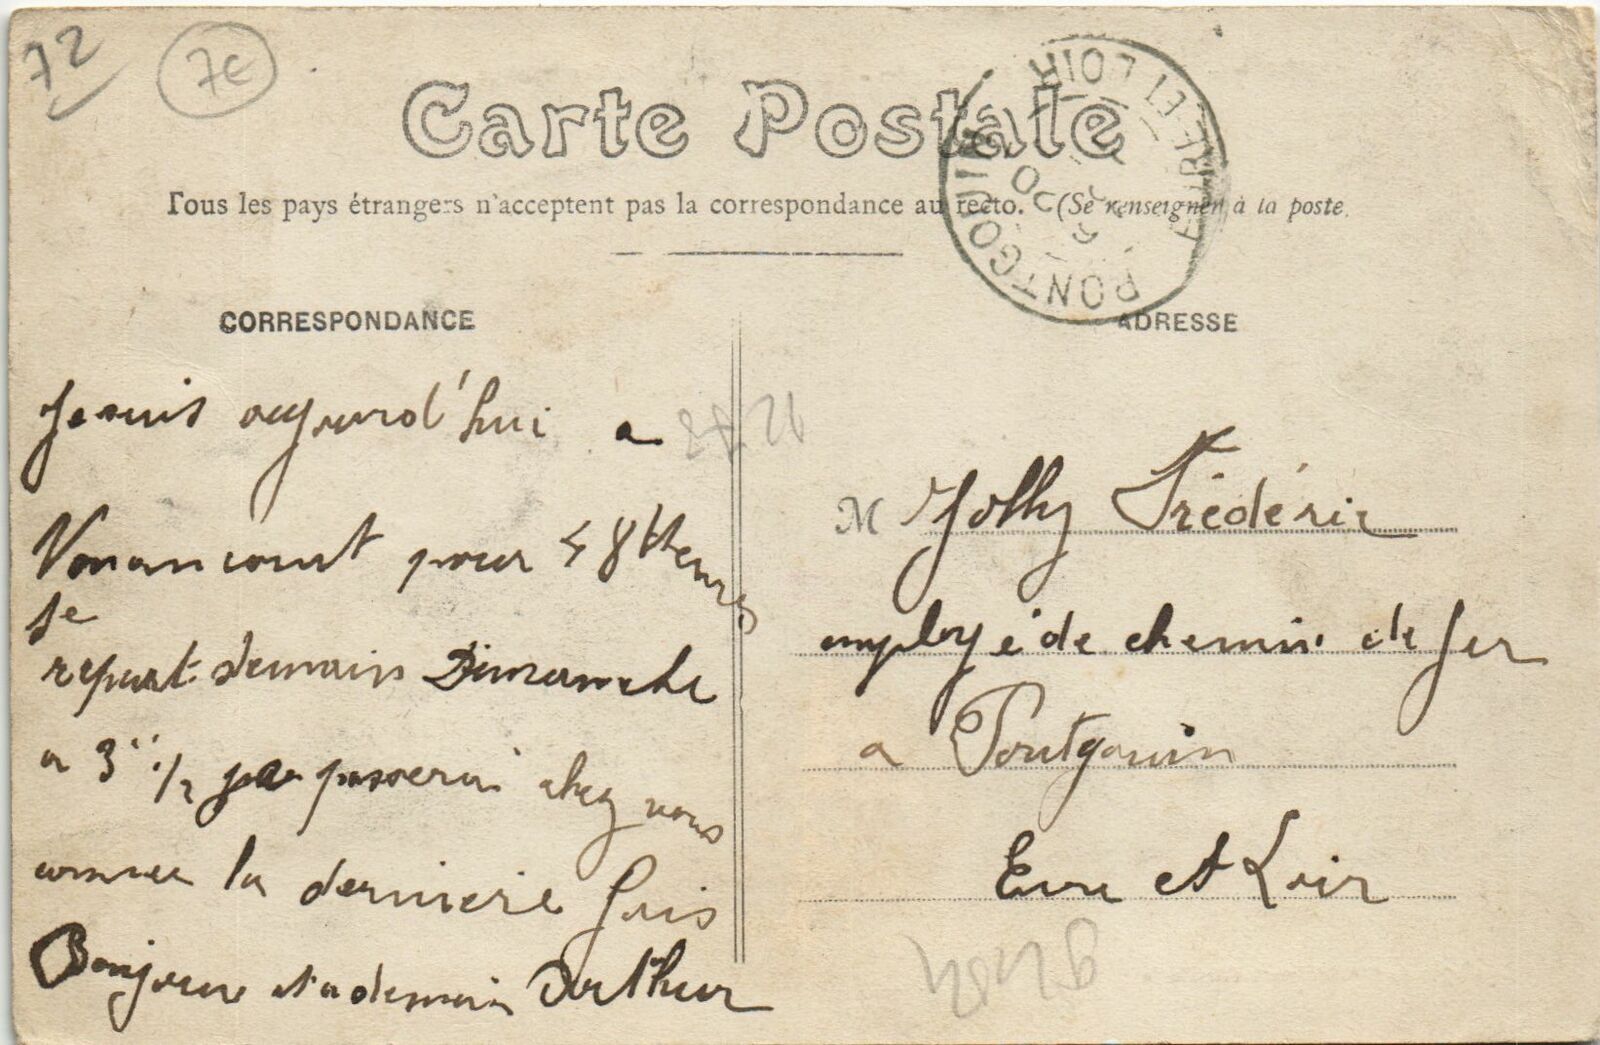 72
7€
Carte Postale
Tous les pays étrangers n'acceptent pas la correspondance au recto. (Se renseigner à la poste.
PONTGOUIN
EURE-ET-LOIR
CORRESPONDANCE
ADRESSE
Je suis aujourd'hui a
Nonancourt pour 48 Heures
Je
repart demain Dimanche
a 3" 1/2 je passerai chez vous
comme la derniere fois
Bonjour et a demain Arthur
M Jolly Frédéric
employé de chemin de fer
a Pontgouin
Eure et Loir